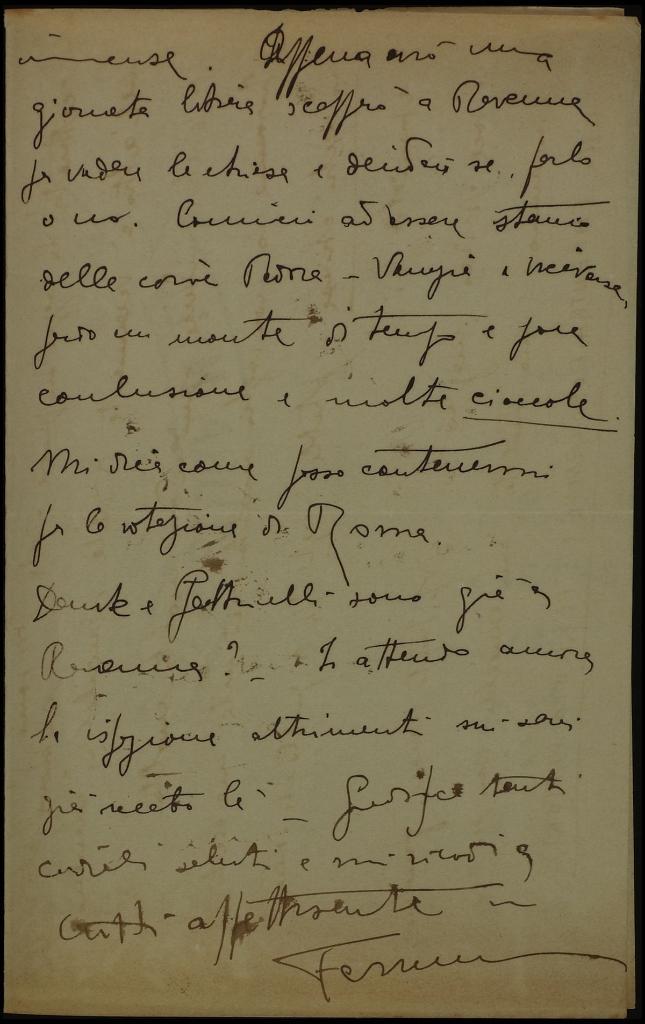 immense. Appena avrò una
giornata libera scapperò a Ravenna
per vedere la chiesa e decidere se farlo
o no. Comincio ad essere stanco
delle corse e viceversa,
perdo un monte di tempo e poca
conclusione e molte
Mi dica come posso contenermi
per la votazione di Roma.
e sono già a
Ravenna? – Io attendo ancora
la ispezione altrimenti mi sarei
già recato là – Gradisca tanti
cordiali saluti e mi ricordi a
tutti affettuosamente